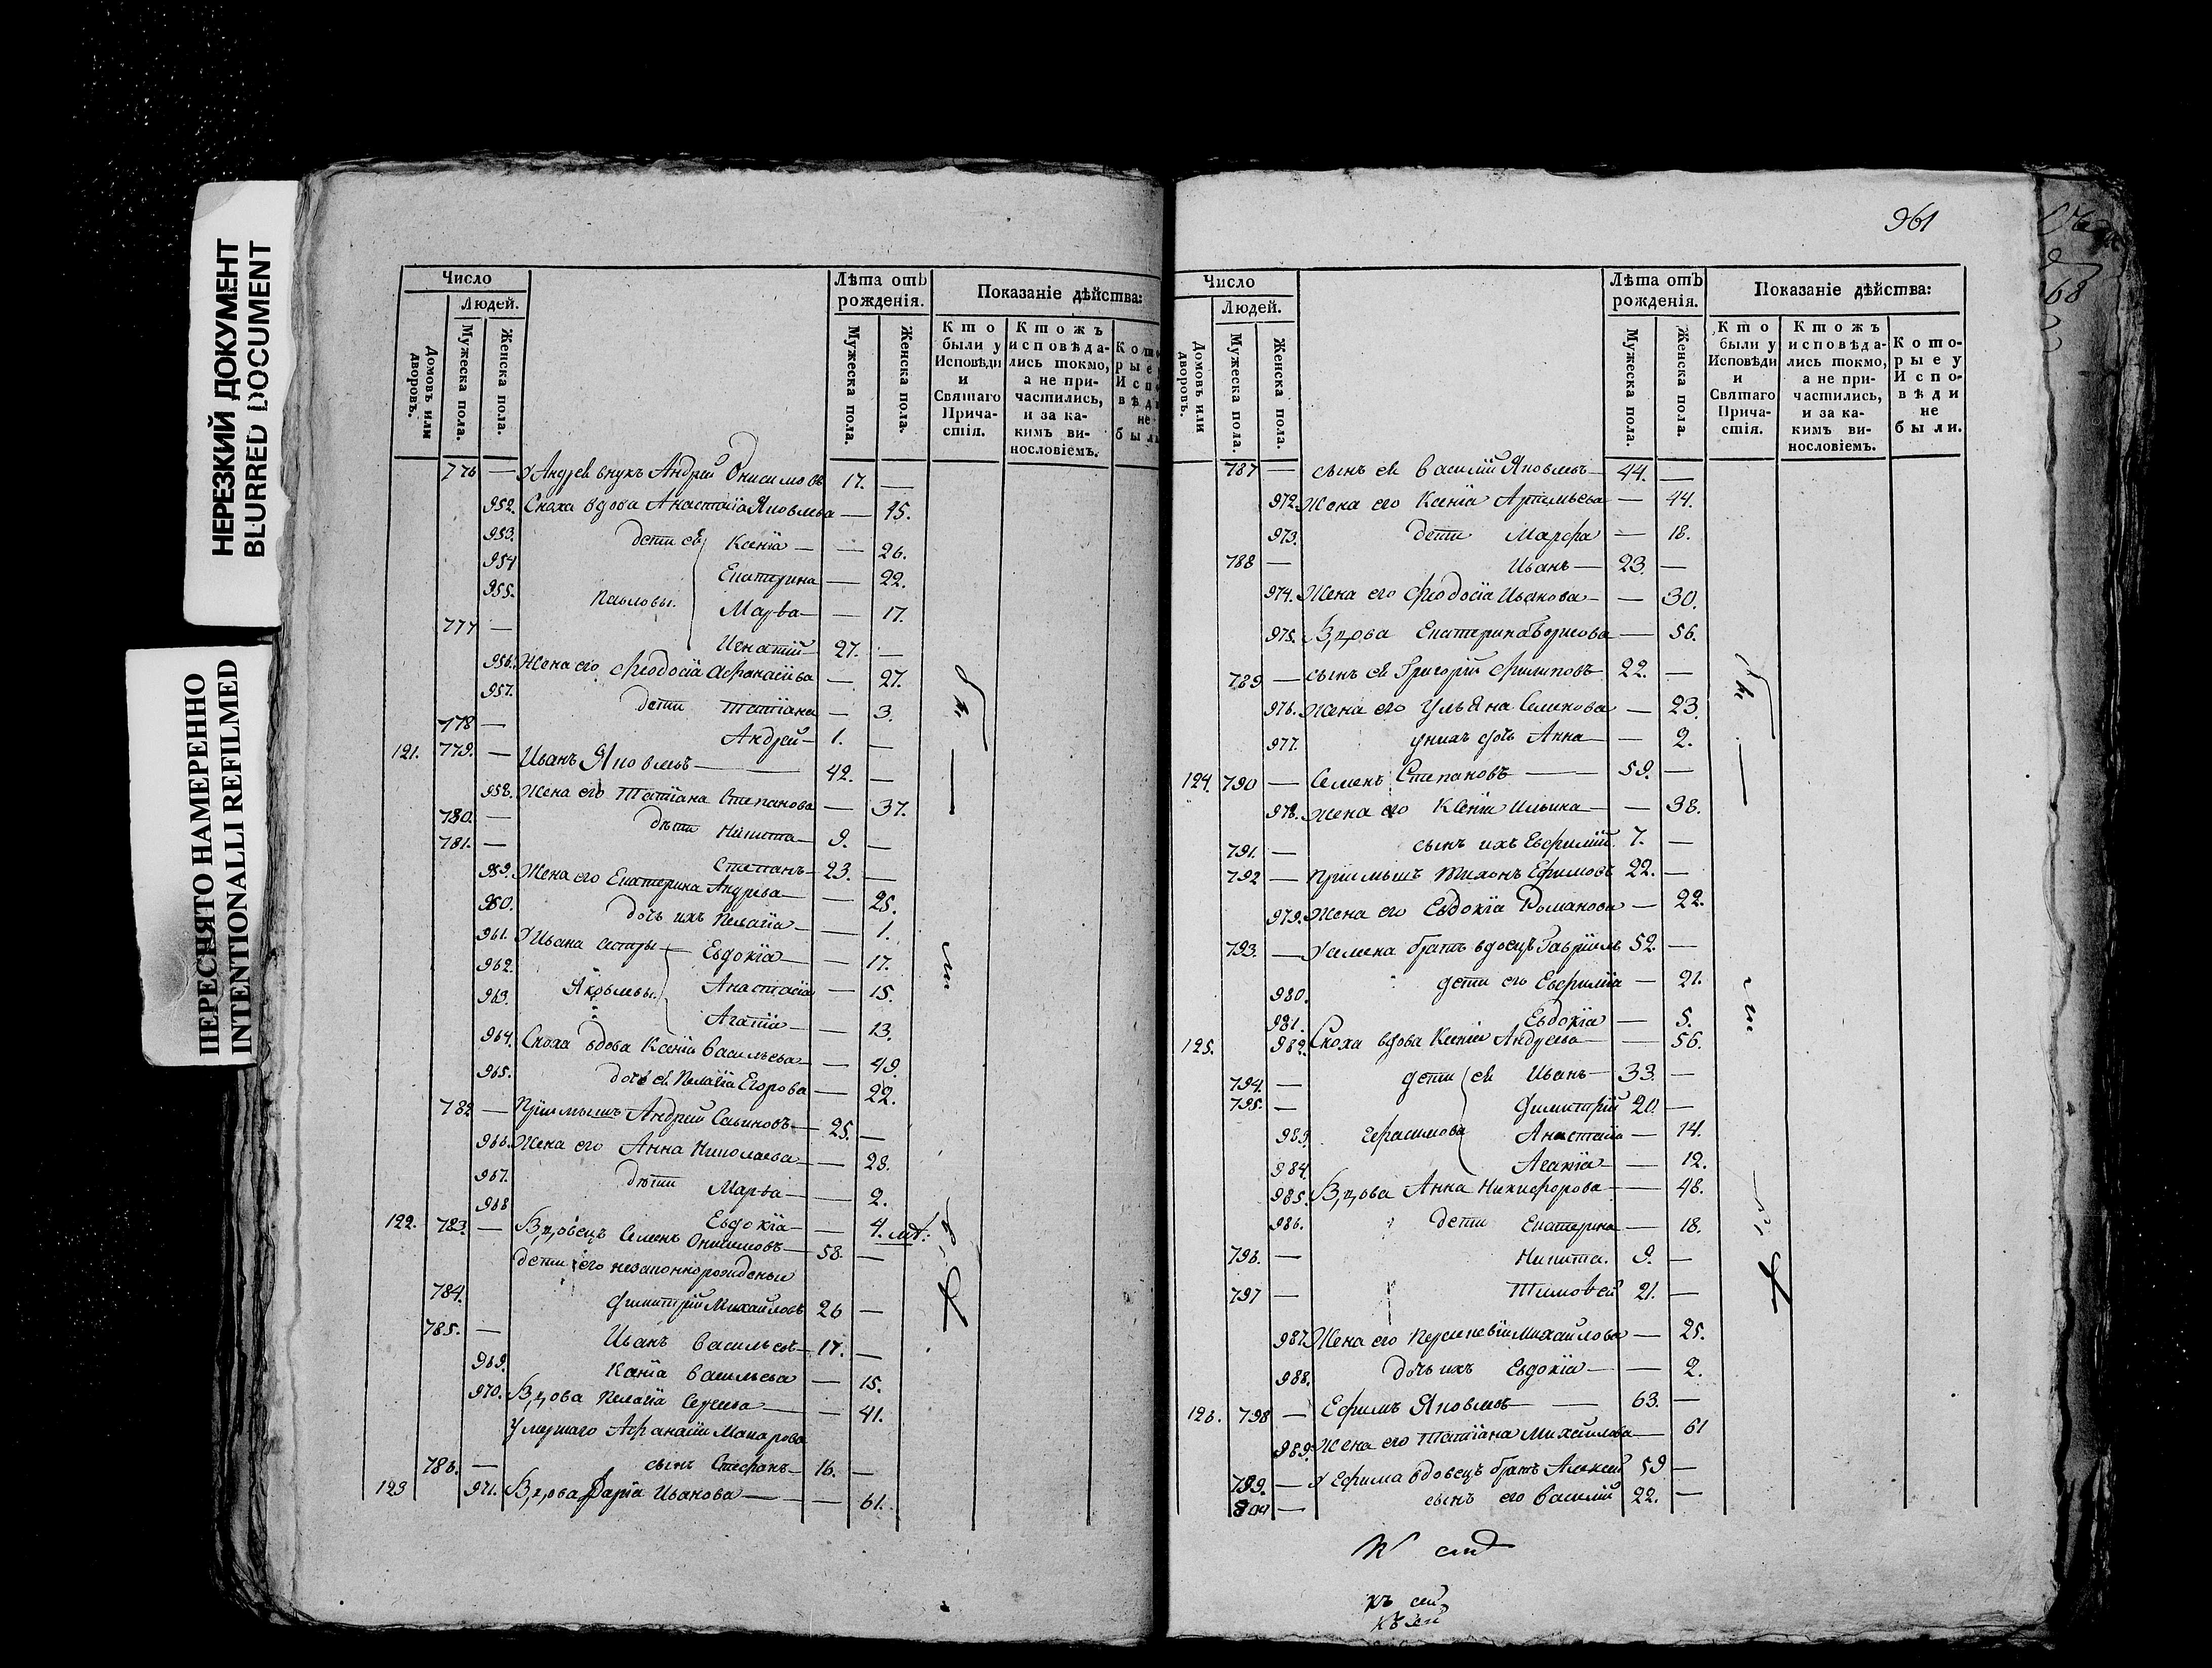 НЕРЕЗКИЙ ДОКУМЕНТ
BLURRED DOCUMENT
ПЕРЕСНЯТО НАМЕРЕННО
INTENTIONALLI REFILMED
Число
Людей.
Домовъ или дворовъ.
Мужеска пола.
Женска пола.
Лѣта отъ рожденія.
Мужеска пола.
Женска пола.
Показаніе дѣйства:
Кто были у Исповѣди и Святаго Причастія.
Ктожъ исповѣдались токмо, а не причастились, и за какимъ винословіемъ.
776 — У Андрея внукъ Андрей Онисимовъ 17. —
952. Сноха вдова Анастасія Яковлева — 45.
953. дети ея Ксенія — — 26.
954 Екатерина — 22.
955. Павловы. Марѳа — — 17.
777 — Игнатій — 27. —
956. Жена его Феодосія Афанасіева — 27.
957. дети Татіана — 3.
778 — Андрей — 1. —
121. 779. — Иванъ Яковлевъ — 42. —
958. Жена его Татіана Степанова — 37.
780. — дѣти Никита — 9. —
781. — Степанъ — 23. —
959. Жена его Екатерина Андреева — 25.
960. дочь ихъ Пелагія — — 1.
961. У Ивана сестры Евдокія — — 17.
962. Яковлевы. Анастасія — 15.
963. Агапія — — 13.
964. Сноха вдова Ксенія Васильева — 49.
965. дочь ея Пелагія Егорова — 22.
782 — Пріимышъ Андрей Савиновъ — 25. —
966. Жена его Анна Николаева — — 28.
967. дѣти Марѳа — — 2.
968 Евдокія — — 4.
122. 783. — Вдовецъ Семенъ Онисимовъ — 58. —
дети его незаконнорожденые
784. Димитрій Михайловъ 26 —
785. — Иванъ Васильевъ — 17. —
969. Васильева — 15.
970. Вдова Пелагія Сергеева — — 41.
Умершаго Афанасія Макарова
786. — сынъ Стефанъ — 16. —
123 971. Вдова Дарія Иванова — — 61.
961
Число
Людей.
Домовъ или дворовъ.
Мужеска пола.
Женска пола.
Лѣта отъ рожденія.
Мужеска пола.
Женска пола.
Показаніе дѣйства:
Кто были у Исповѣди и Святаго Причастія.
Ктожъ исповѣдались токмо, а не причастились, и за какимъ винословіемъ.
Которые у Исповѣди не были.
787 — сынъ ея Василій Яковлевъ — 44. —
972. Жена его Ксенія Артемьева — 44.
973. дети Марфа — 18.
788 — Иванъ — 23. —
974. Жена его Феодосія Иванова — — 30.
975. Вдова Екатерина Борисова — 56.
789 — сынъ ея Григорій Филиповъ 22. —
976. Жена его Ульяна Семенова — 23.
977. у нихъ дочь Анна — — 2.
124. 790 — Семенъ Степановъ — 59. —
978. Жена его Ксенія Ильина — — 38.
791. — сынъ ихъ Евфимій 7. —
792 — Пріимышъ Тихонъ Ефимовъ 22. —
979. Жена его Евдокія Романова — 22.
793. — У Семена братъ вдовецъ Гавріилъ 52. —
980. дети его Евфимія — 21.
981. Евдокія — 5.
125. 982. Сноха вдова Ксенія Андреева — — 56.
794. — дети ея Иванъ — 33. —
795. — Димитрій 20. —
983. Герасимова Анастасія — 14.
984. Агапія — — 12.
985. Вдова Анна Никифорова — — 48.
986. дети Екатерина — 18.
796. — Никита. 9. —
797 — Тимоѳей 21. —
987. Жена его Михаилова — 25.
988. дочь ихъ Евдокія — — 2.
126. 798 — Ефимъ Яковлевъ — 63. —
989. Жена его Татіана Михайлова — 61
799. — У Ефима вдовецъ братъ Алексей 59 —
сынъ его Василій 22. —
къ сей
къ сей